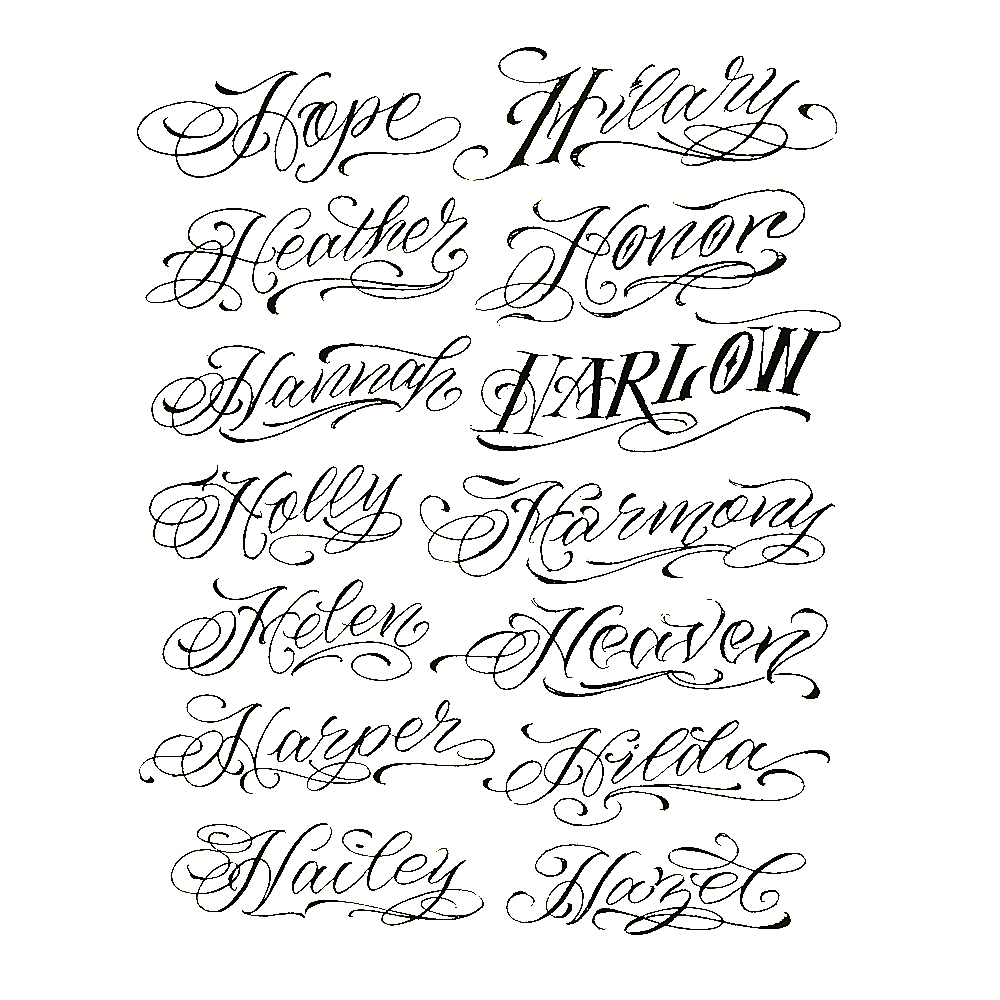 Hope Hilary
Heather Honor
Hannah HARLOW
Holly Harmony
Helen Heaven
Harper Hilda
Hailey Hazel